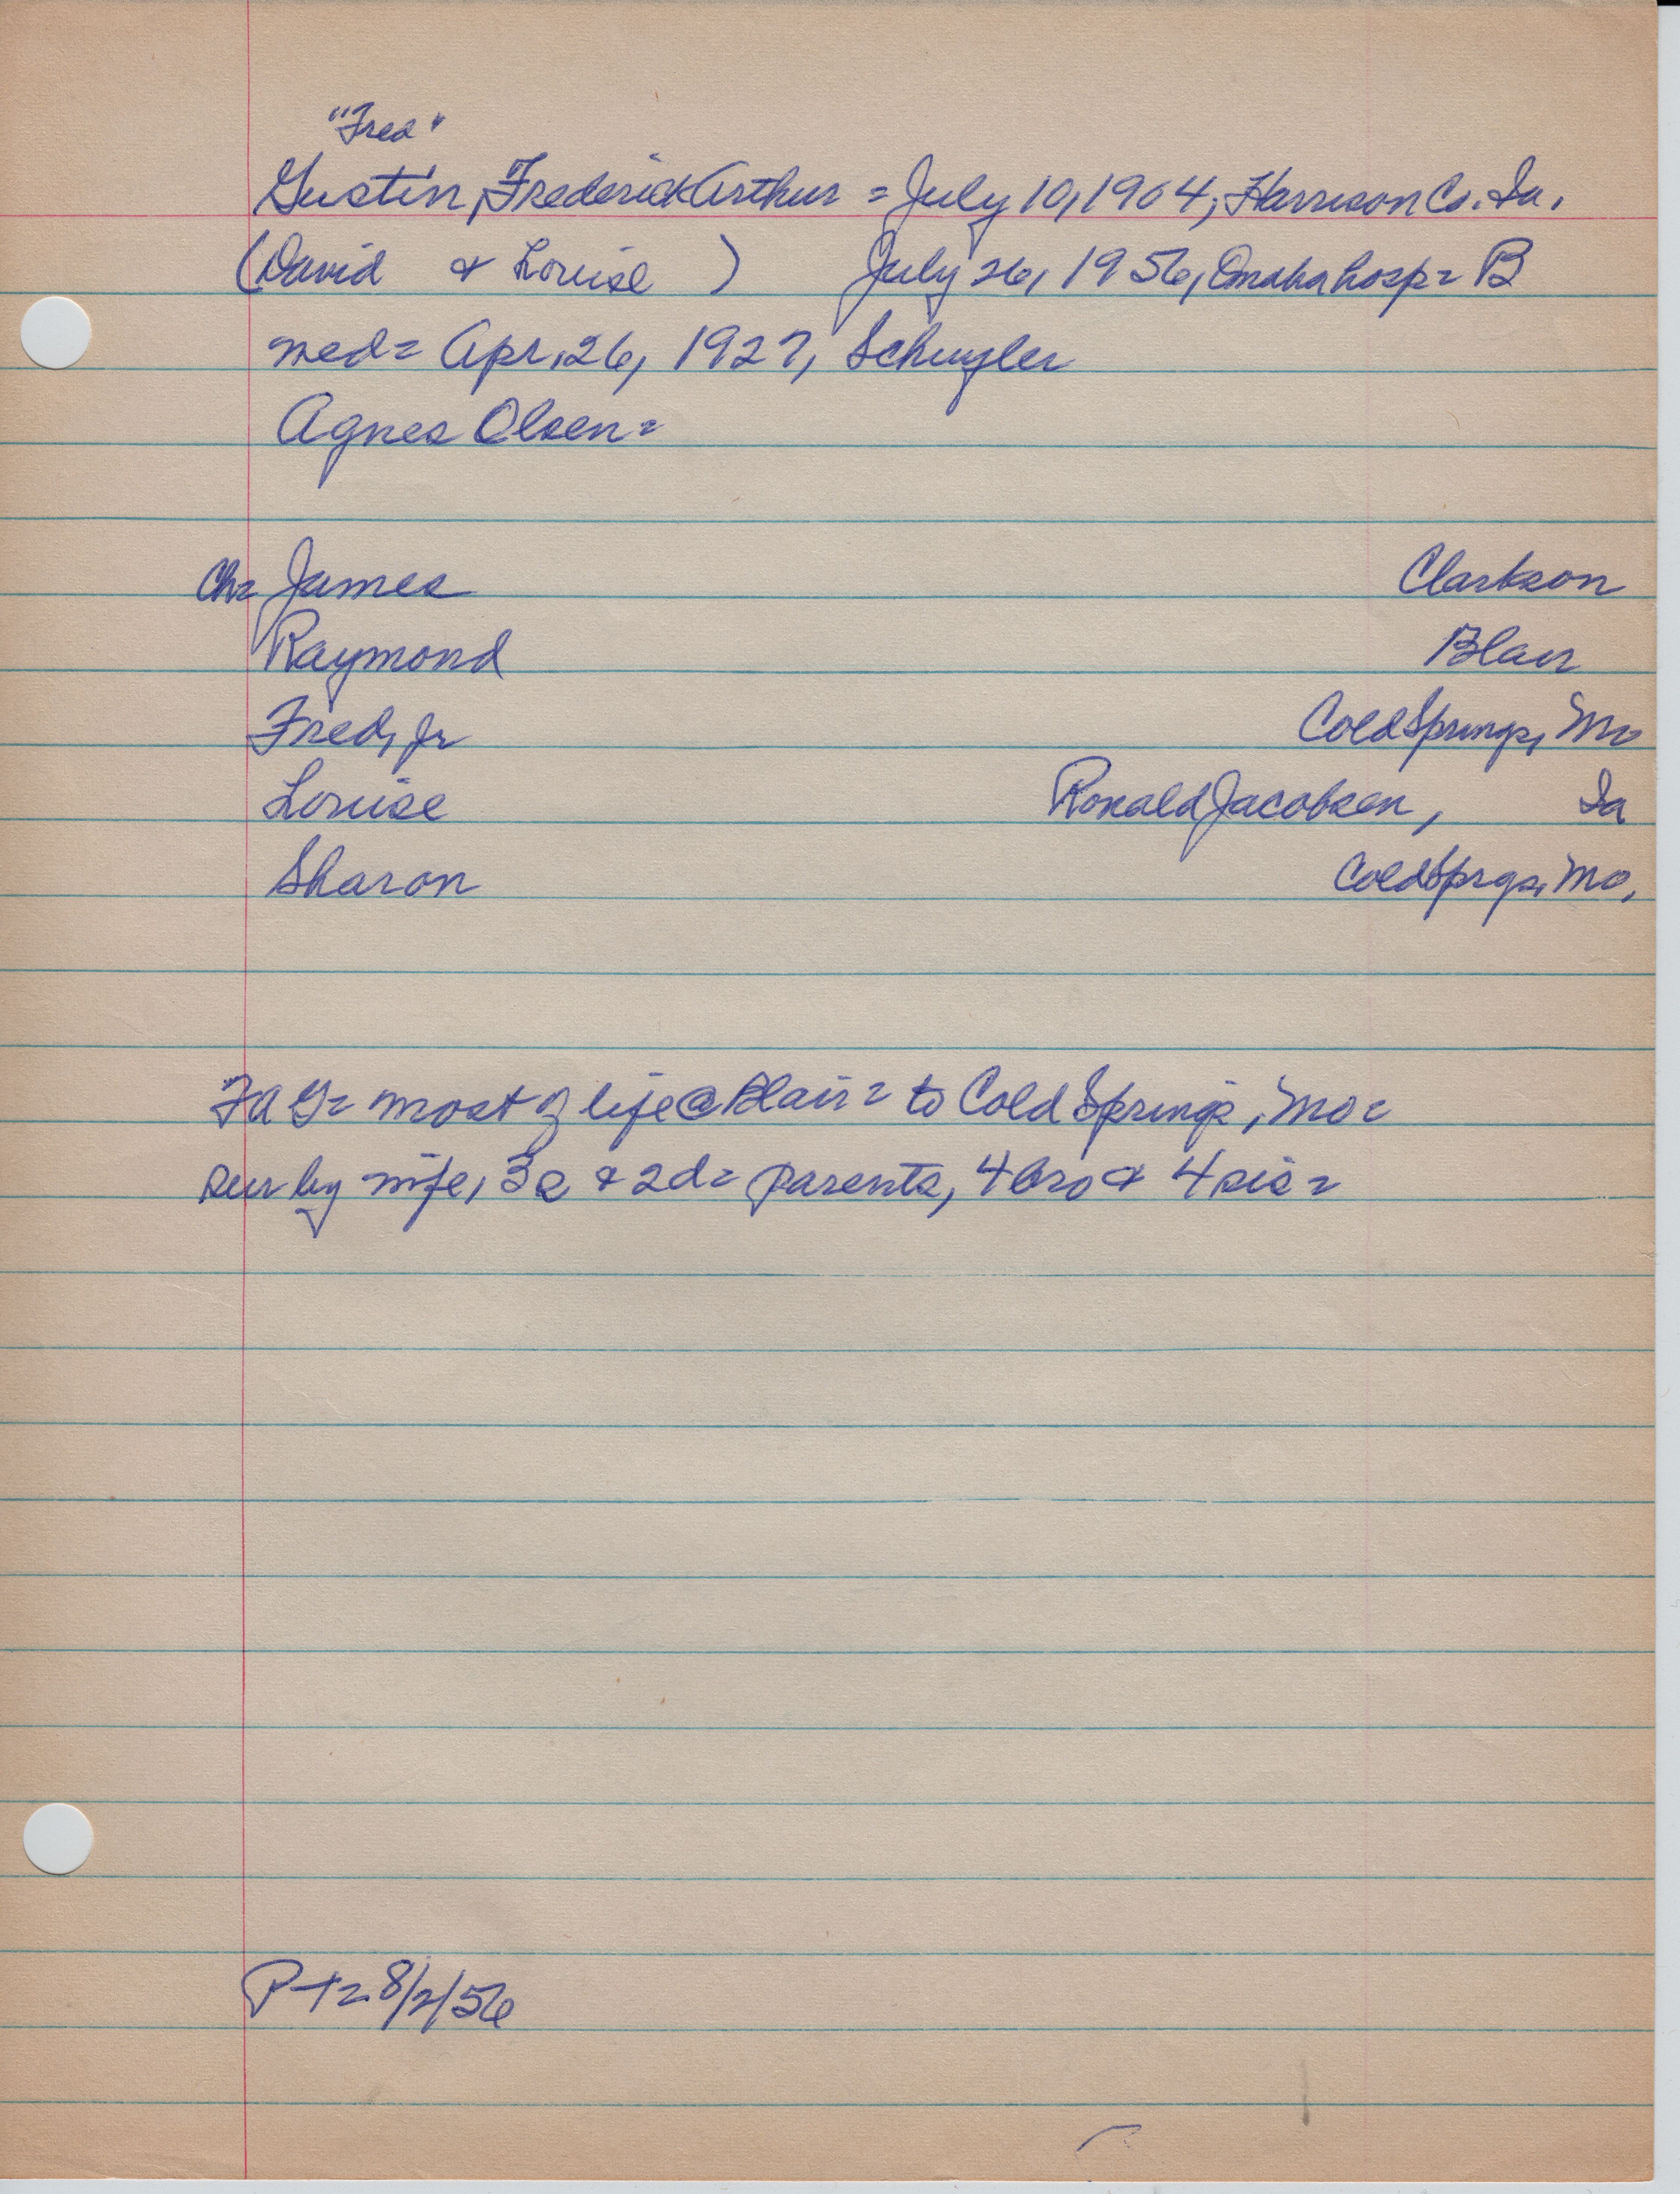 "Fred"
Gustin, Frederick Arthur = July 10, 1904, Harrison Co. Ia.
(David & Louise ) July 26, 1956, Omaha hosp = B
wed = Apr. 26, 1927, Schuyler
Agnes Olsen =
Ch = James Clarkson
Raymond Blair
Fred, Jr Cold Springs, Mo
Louise Ronald Jacobsen, Ia
Sharon Cold Sprgs, Mo,
FAG = most of life @ Blair = to Cold Springs, Mo =
sur by wife, 3s & 2d = parents, 4 bro & 4 sis =
P-t = 8/2/56